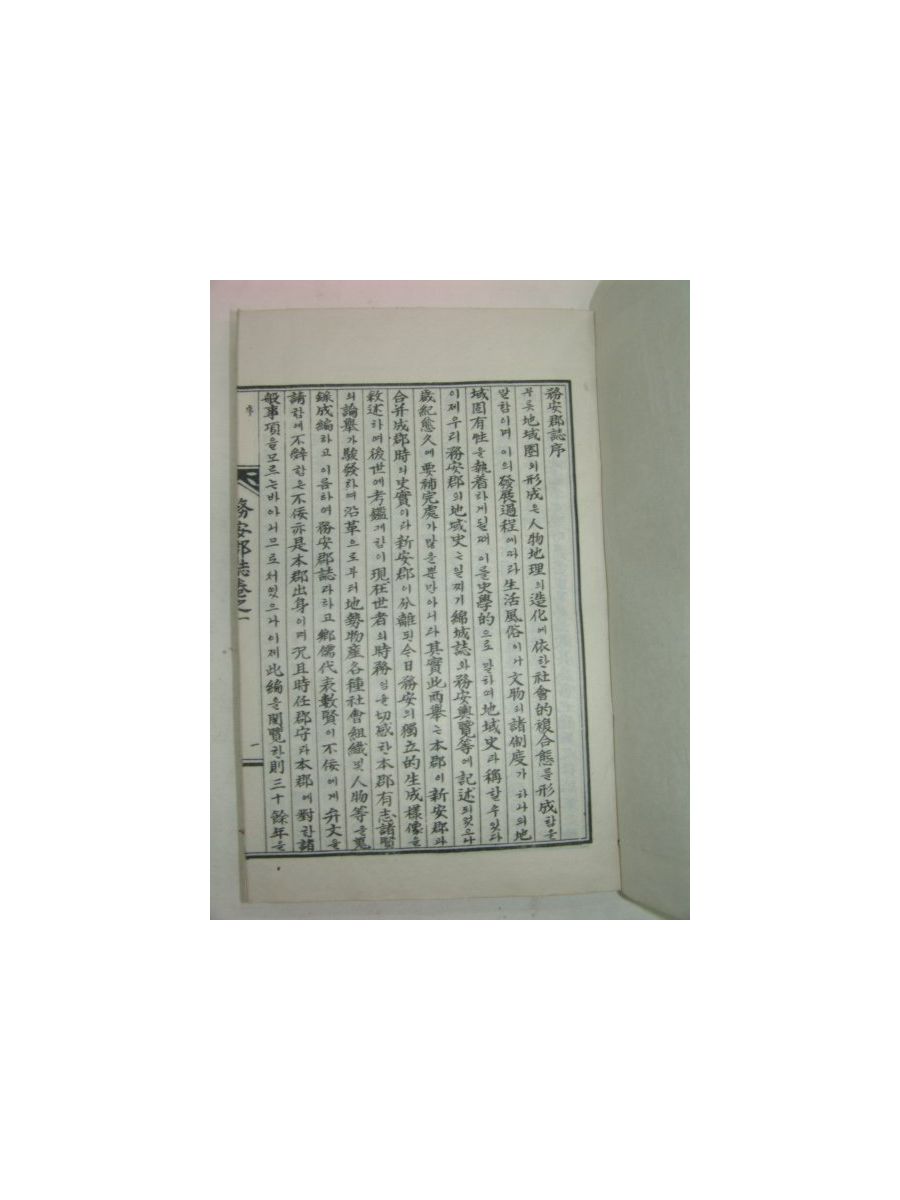 務安郡誌序
무릇地域圈의形成은人物地理의造化에依한社會的複合態를形成함을
말함이며이의發展過程에따라生活風俗이나文物의諸制度가하나의地
域固有性을執着하게될때이를史學的으로말하여地域史라稱할수있다
이제우리務安郡의地域史는일찌기綿城誌와務安輿覽等에記述되었으나
歲紀愈久에要補完處가많을뿐만아니라其實此兩擧는本郡이新安郡과
合并成郡時의史實이라新安郡이分離된今日務安의獨立的生成樣像을
敘述하여後世에考鑑게함이現在世者의時務임을切感한本郡有志諸賢
의論擧가駿發하여沿革으로부터地勢物産各種社會組織및人物等을蒐
錄成編하고이름하여務安郡誌라하고鄕儒代表數賢이不佞에게弁文을
請함에不辭함은不佞亦是本郡出身이며況且時任郡守라本郡에對한諸
般事項을모르는바아니므로서였으나이제此編을閱覽한則三十餘年을
序
務安郡誌卷之一
一